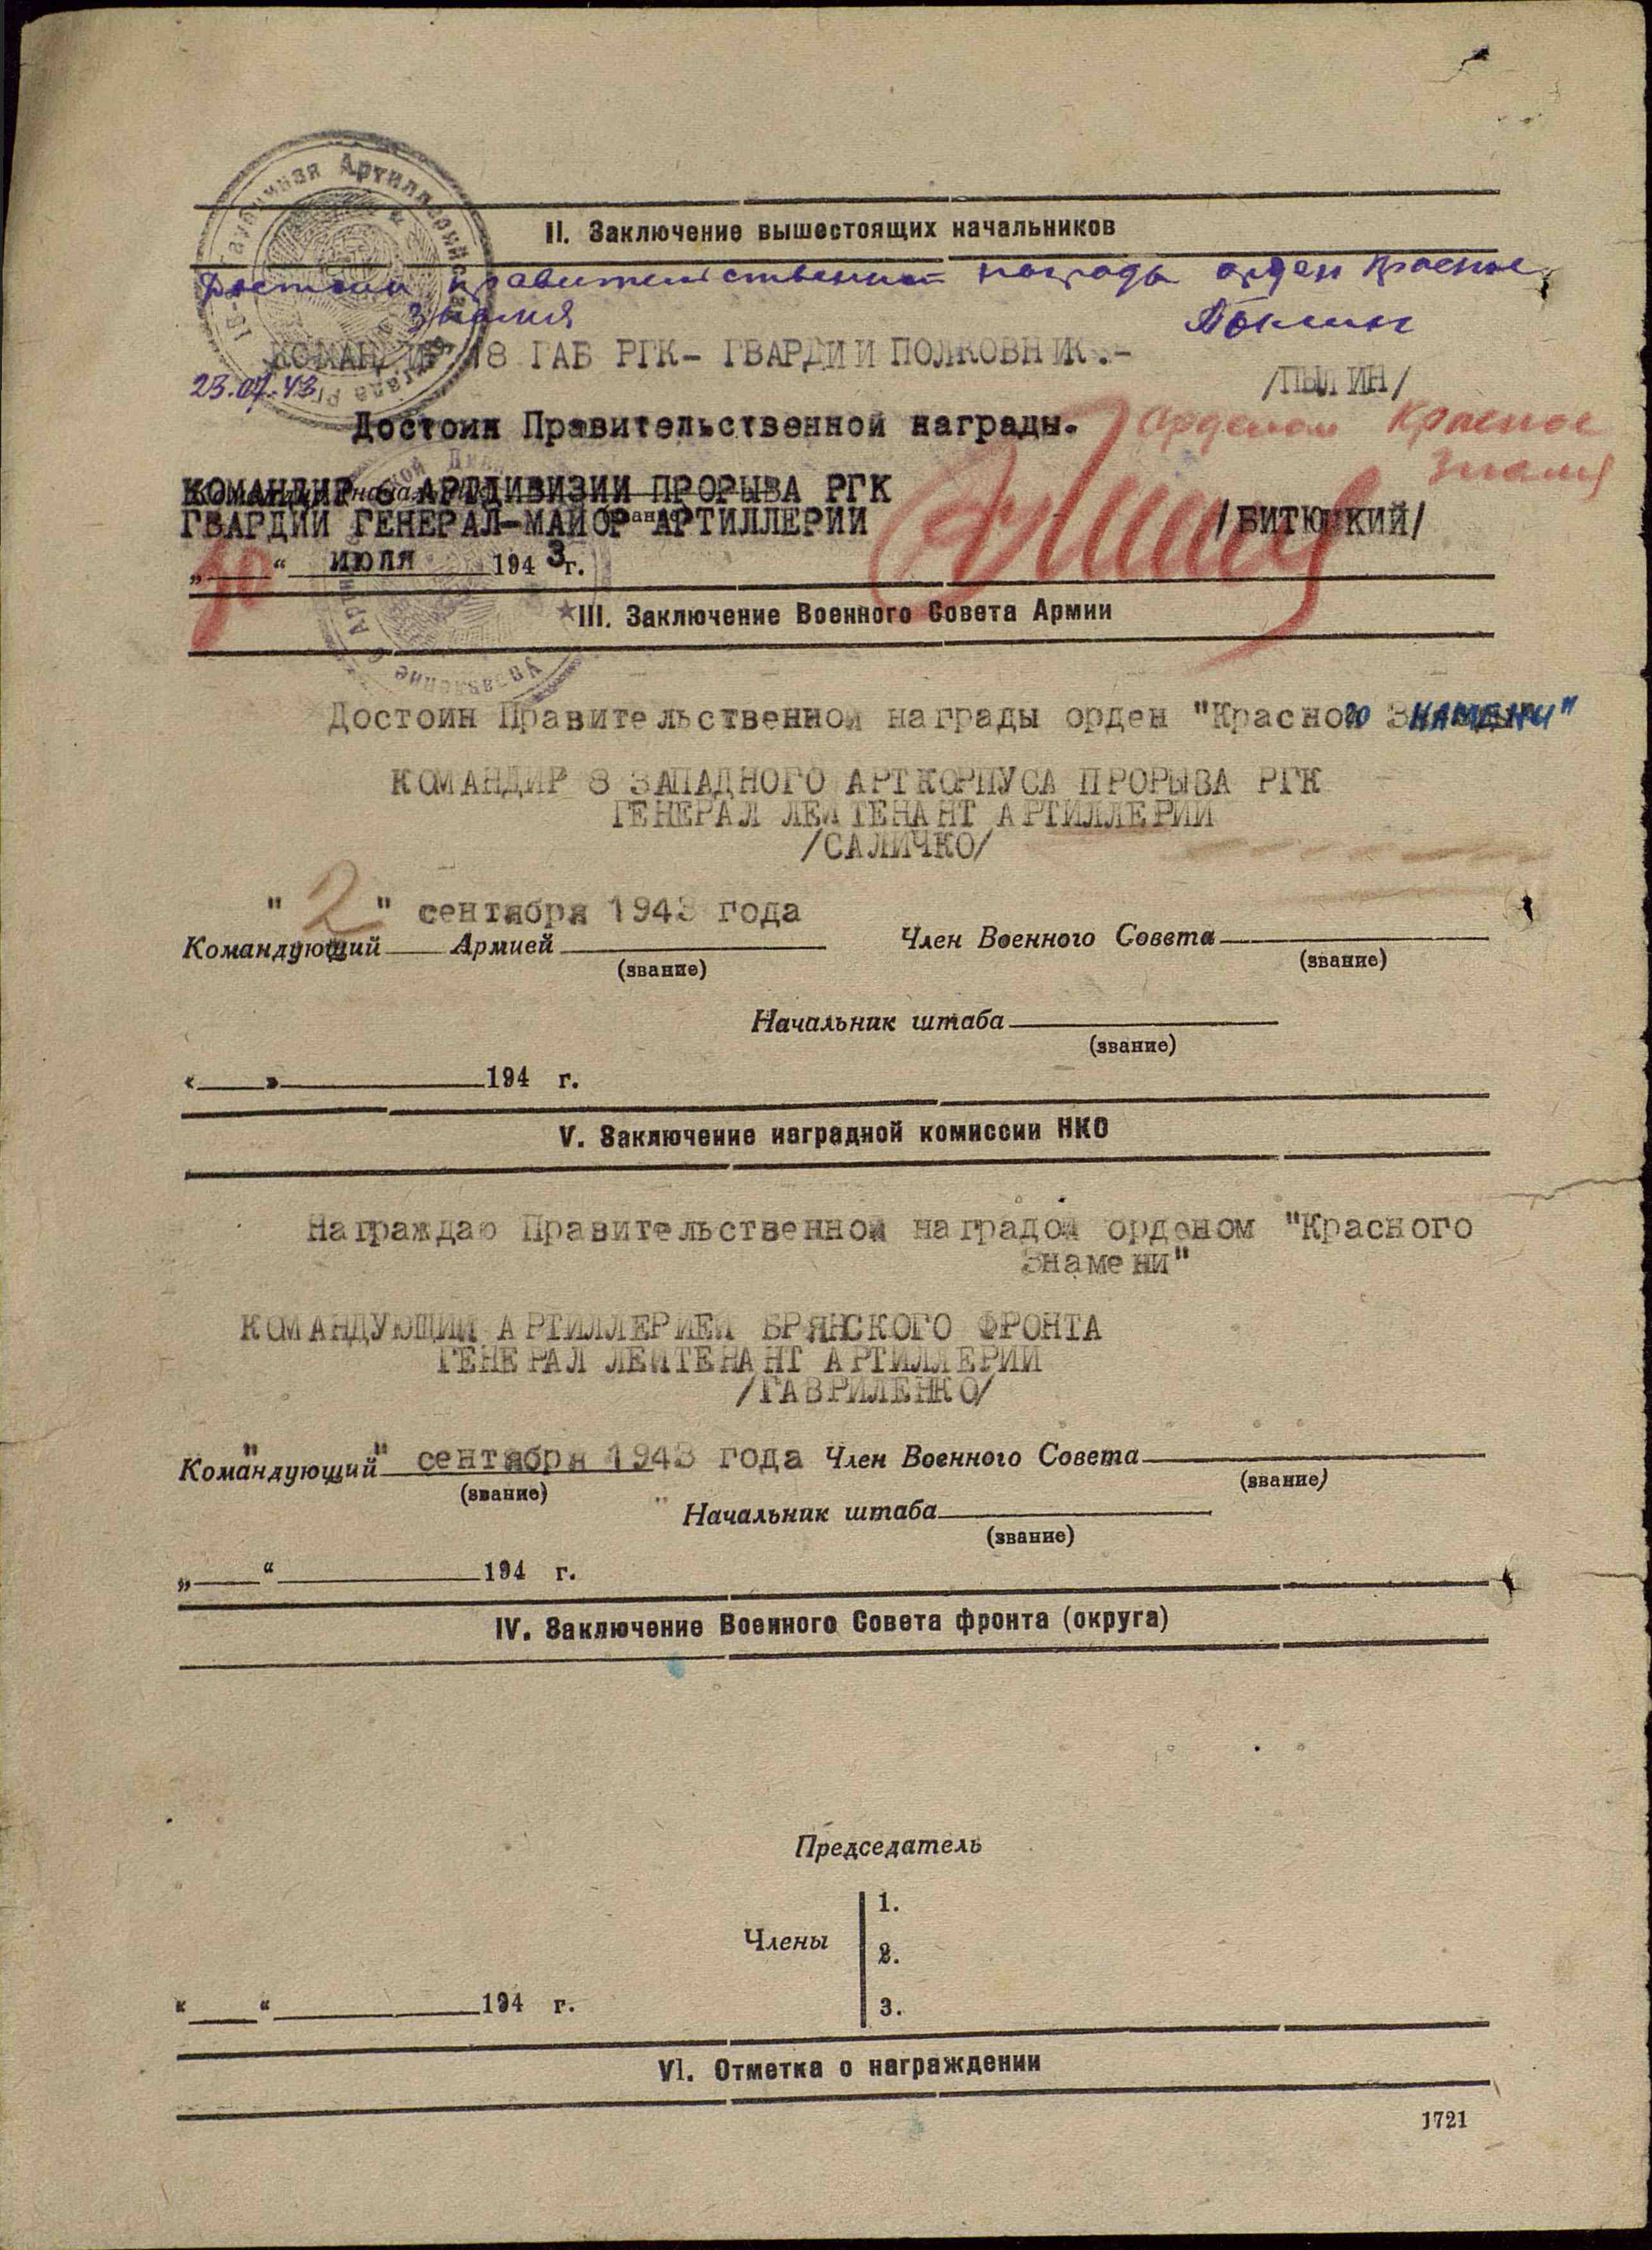 II. Заключение вышестоящих начальников
Достоин правительственной награды орден Красное
Знамя
Пылин
КОМАНДИР 18 ГАБ РГК- ГВАРДИИ ПОЛКОВНИК.-
/ПЫЛИН/
23.07.43
Достоин Правительственной награды.
Орденом Красное
Знамя
КОМАНДИР 6 АРТДИВИЗИИ ПРОРЫВА РГК
ГВАРДИИ ГЕНЕРАЛ-МАЙОР АРТИЛЛЕРИИ /БИТЮЦКИЙ/
„30“ июля 1943 г.
III. Заключение Военного Совета Армии
Достоин Правительственной награды орден "Красного ЗНАМЕНИ"
КОМАНДИР 8 ЗАПАДНОГО АРТКОРПУСА ПРОРЫВА РГК
ГЕНЕРАЛ ЛЕЙТЕНАНТ АРТИЛЛЕРИИ
/САЛИЧКО/
"2" сентября 1943 года
Командующий Армией Член Военного Совета
(звание) (звание)
Начальник штаба
(звание)
« » 194 г.
V. Заключение наградной комиссии НКО
Награждаю Правительственной наградой орденом "Красного
Знамени"
КОМАНДУЮЩИЙ АРТИЛЛЕРИЕЙ БРЯНСКОГО ФРОНТА
ГЕНЕРАЛ ЛЕЙТЕНАНТ АРТИЛЛЕРИИ
/ГАВРИЛЕНКО/
" " сентября 1943 года
Командующий Член Военного Совета
(звание) (звание)
Начальник штаба
(звание)
„ “ 194 г.
IV. Заключение Военного Совета фронта (округа)
Председатель
Члены
1.
2.
3.
« “ 194 г.
VI. Отметка о награждении
1721